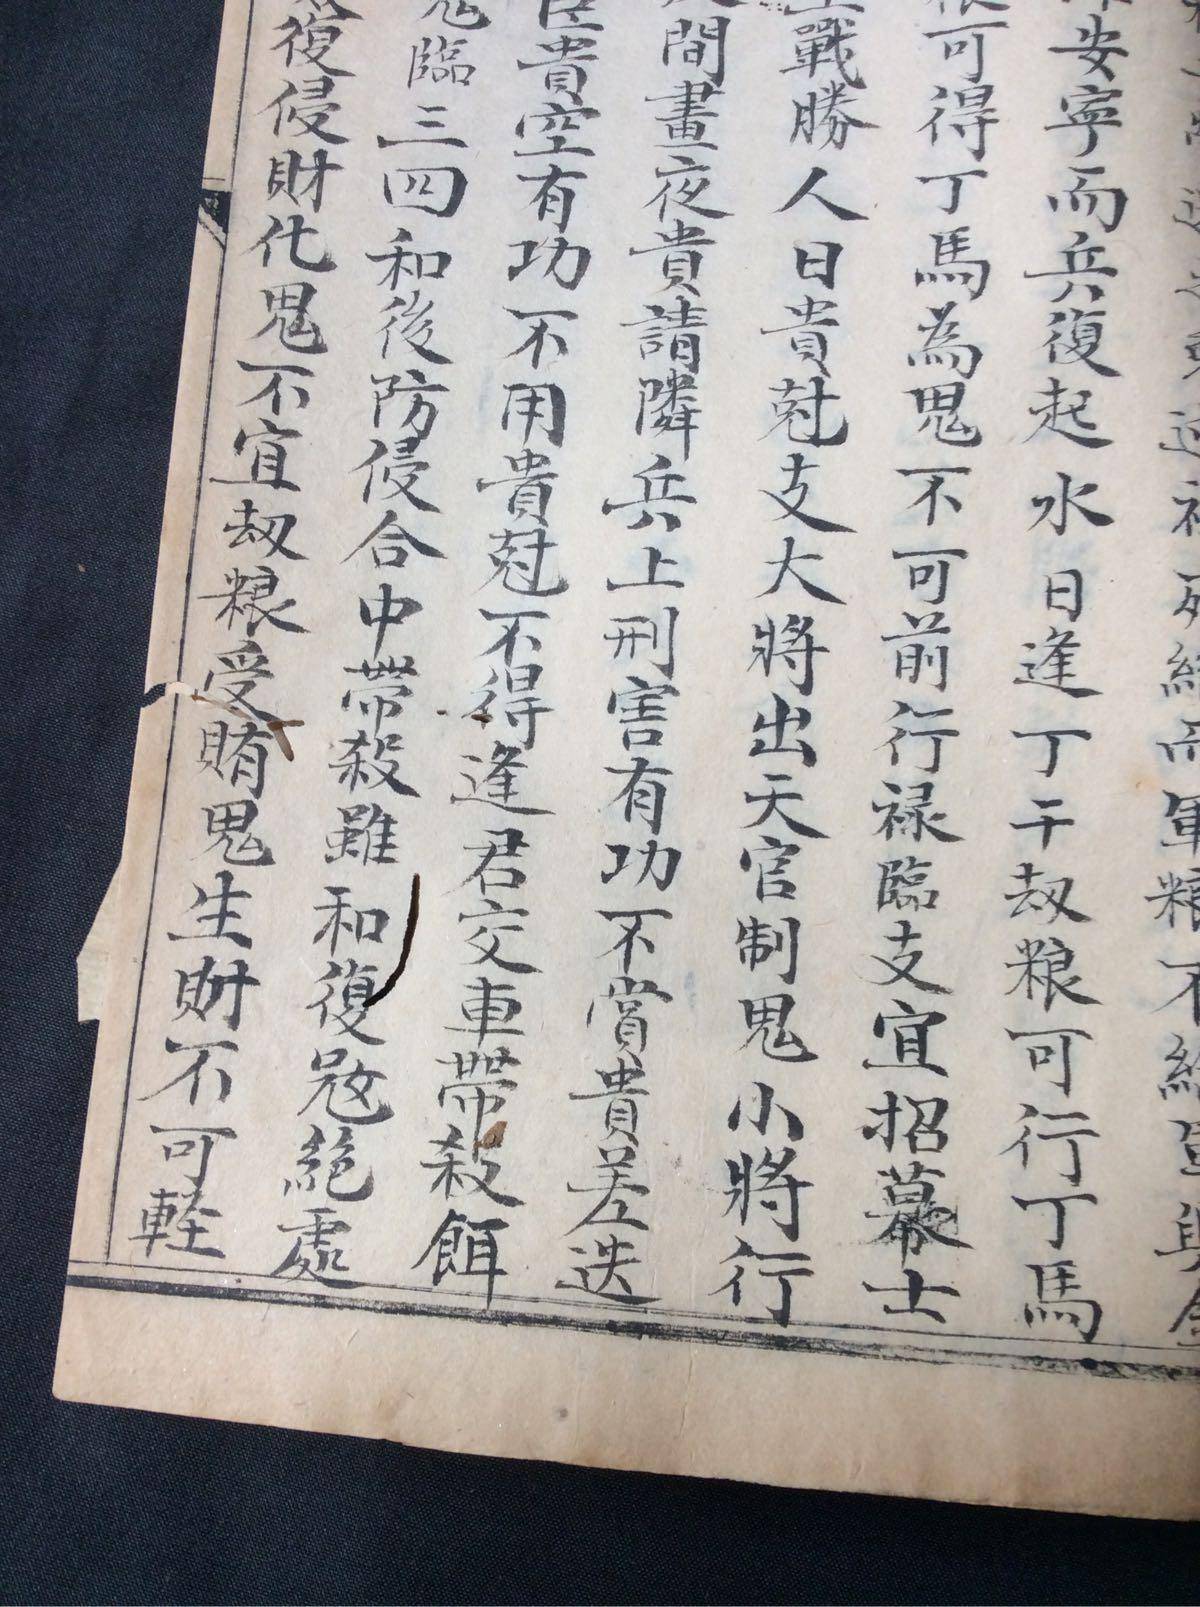 軍粮不
安寧而兵復起水日逢丁干刼粮可行丁馬
可得丁馬為鬼不可前行禄臨支宜招幕士
戰勝人日貴尅支大將出天官制鬼小將行
間晝夜貴請隣兵上刑害有功不賞貴差迭
貴空有功不用貴尅不得逢君交車帶殺餌
臨三四和後防侵合中帶殺雖和復冦絕處
復侵財化鬼不宜刼粮受賄鬼生財不可軽